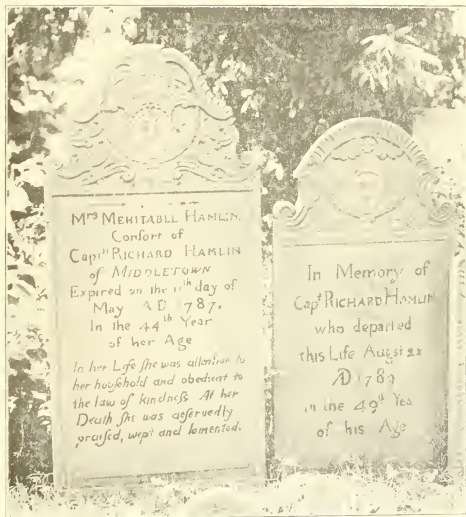 Mrs MEHITABLL HAMLIN.
Confort of
Captn RICHARD HAMLIN
of MIDDLETOWN
Expired on the 11th day of
May AD 1787.
In the 44th Year
of her Age
In her Life ſhe was attentive to
her houſehold and obedient to
the law of kindneſs At her
Death ſhe was deſervedly
praiſed, wept and lamented.
In Memory of
Capt RICHARD HAMLIN
who departed
this Life Augst 22
AD
in the 49th Yea
of his Age